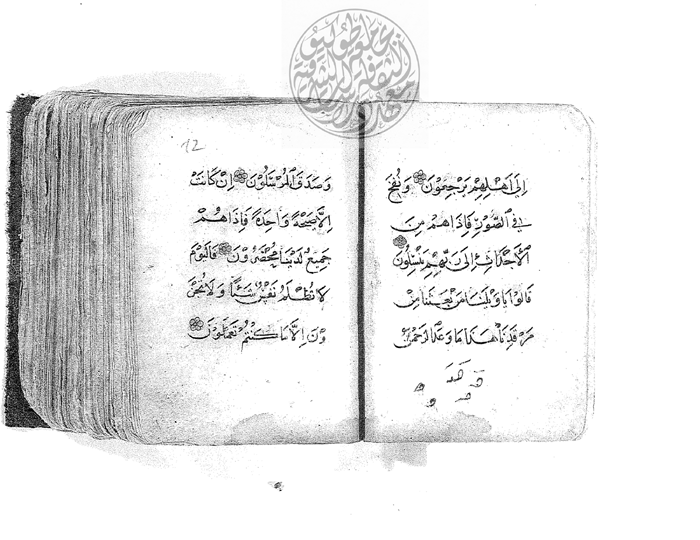 إِلَىٰ أَهْلِهِمْ يَرْجِعُونَ وَنُفِخَ
فِي الصُّورِ فَإِذَا هُمْ مِنَ
الْأَجْدَاثِ إِلَىٰ رَبِّهِمْ يَنْسِلُونَ
قَالُوا يَا وَيْلَنَا مَنْ بَعَثَنَا مِنْ
مَرْقَدِنَا هَٰذَا مَا وَعَدَ الرَّحْمَٰنُ
12
وَصَدَقَ الْمُرْسَلُونَ إِنْ كَانَتْ
إِلَّا صَيْحَةً وَاحِدَةً فَإِذَا هُمْ
جَمِيعٌ لَدَيْنَا مُحْضَرُونَ فَالْيَوْمَ
لَا تُظْلَمُ نَفْسٌ شَيْئًا وَلَا تُجْزَ
وْنَ إِلَّا مَا كُنْتُمْ تَعْمَلُونَ